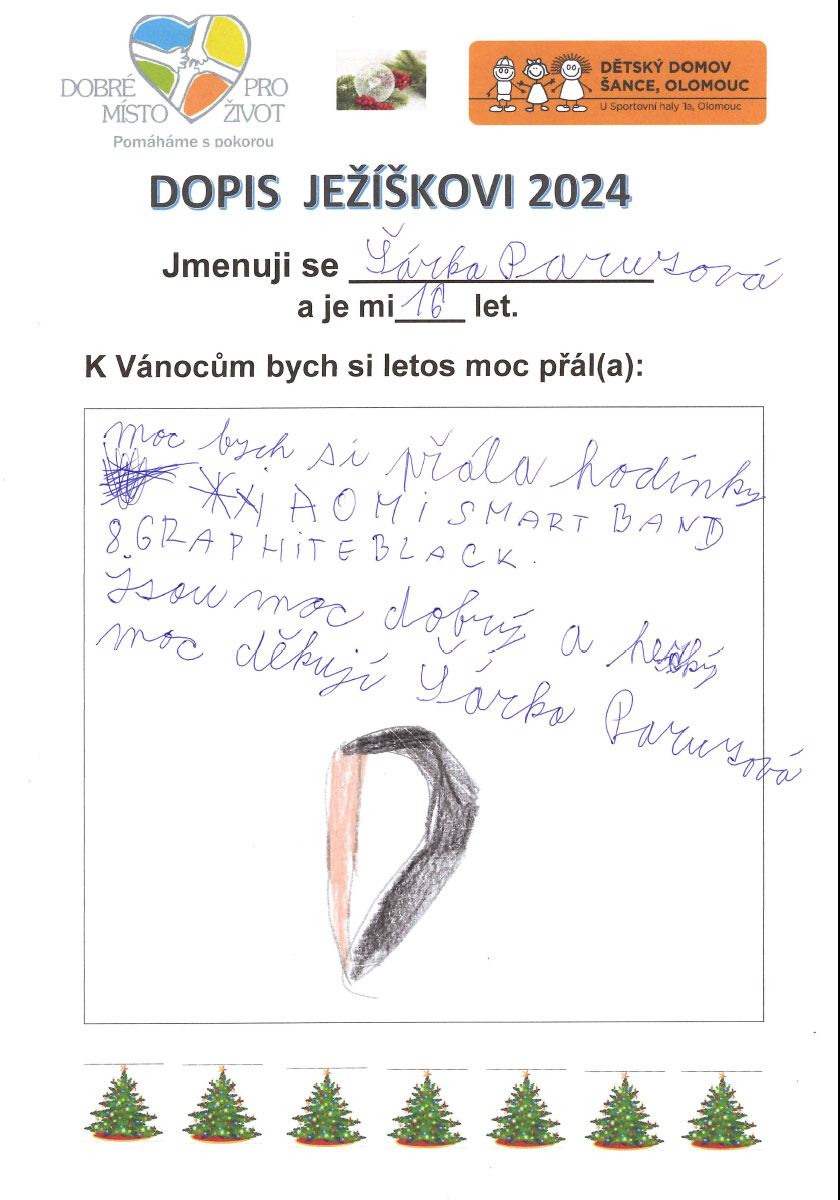 DOBRÉ PRO
MÍSTO ŽIVOT
Pomáháme s pokorou
DĚTSKÝ DOMOV
ŠANCE, OLOMOUC
U Sportovní haly 1a, Olomouc
DOPIS JEŽÍŠKOVI 2024
Jmenuji se Šárka Parusová
a je mi 16 let.
K Vánocům bych si letos moc přál(a):
moc bych si přála hodínky
XiAOMi SMART BAND
8 GRAPHiTE BLACK.
Jsou moc dobrý a
moc děkují Šárka Parusová